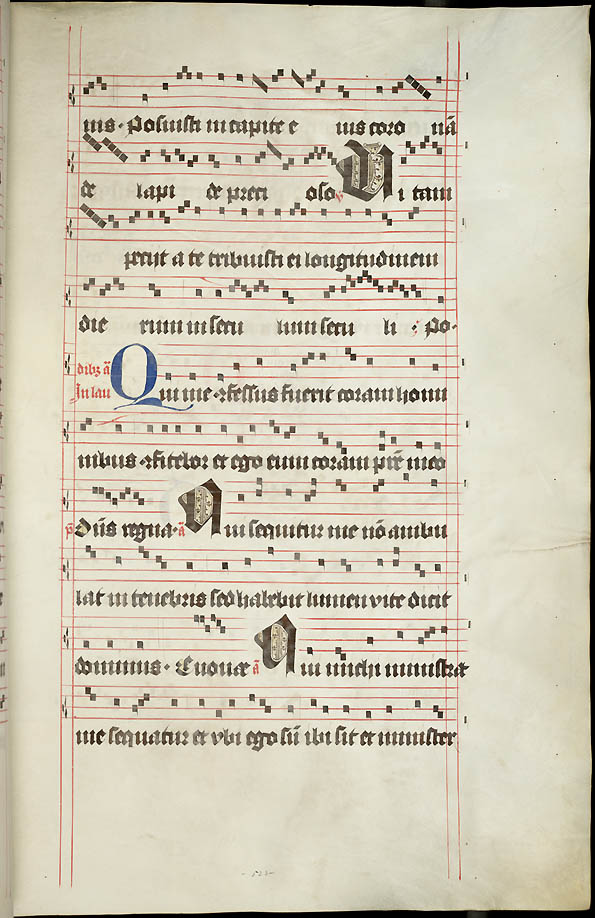 ius · Posuisti in capite e ius coro nā
de lapi de preci oso ℣ V i tam
petijt a te tribuisti ei longitudinem
die rum in secu lum secu li · Po·
In lau dibꝫ ā Q ui me ꝯfessus fuerit coram homi
nibus ꝯfitebor et ego eum coram pr̄e meo
p̄ Dn̄s regna· ā Q ui sequitur me nō ambu
lat in tenebris sed habebit lumen vite dicit
dominus · Euouae ā Q ui michi ministrat
me sequatur et vbi ego sū ibi sit et minister